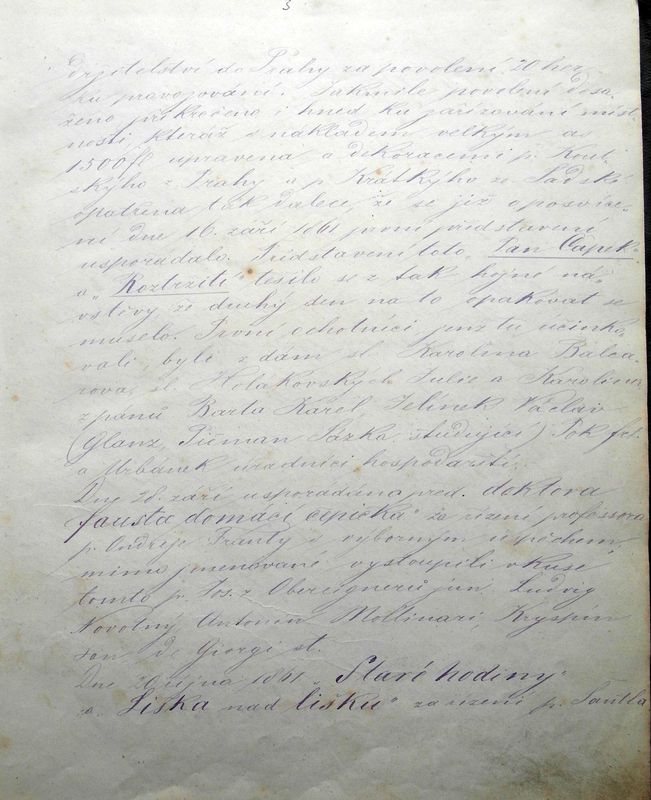 3
držitelství do Prahy za povolení 20 her
ku provozování. Jakmile povolení dosa-
ženo přikročeno i hned ku zařizování míst-
nosti, kteráž s nákladem velkým as
1500 fl upravena a dekoracemi p.
z Prahy a p. Krátkýho ze Sadské
opatřena tak dalece, že se již o posvíce-
ní dne 16. září 1861 první představení
uspořádalo. Představení toto „Jan Čapek"
a „Roztržití" těšilo se z tak hojné ná-
vštěvy, že druhý den na to opakovat se
muselo. První ochotníci jenž tu účinko-
vali, byli z dám sl. Karolina Balca-
rova, sl. Holakovských Julie a Karolina
z pánů Barta Karel, Jelínek Václav
(Glanz, Picman Sazka, studující) Fok
a Urbánek úradníci hospodářstí.
Dne 28. září uspořádána před. doktora
fausta domácí čepička" za řízení professora
p. Ondřeje Franty s výborným úspěchem,
mimo jmenované vystoupili v kuse
tomto p. Jos. z Obereignerů jun. Ludvig
Novotný, Antonín Mollinari, Kryspín
Jan de Giorgi st.
Dne 20 října 1861 „Staré hodiny"
a „Liška nad lišku" za řízení p.